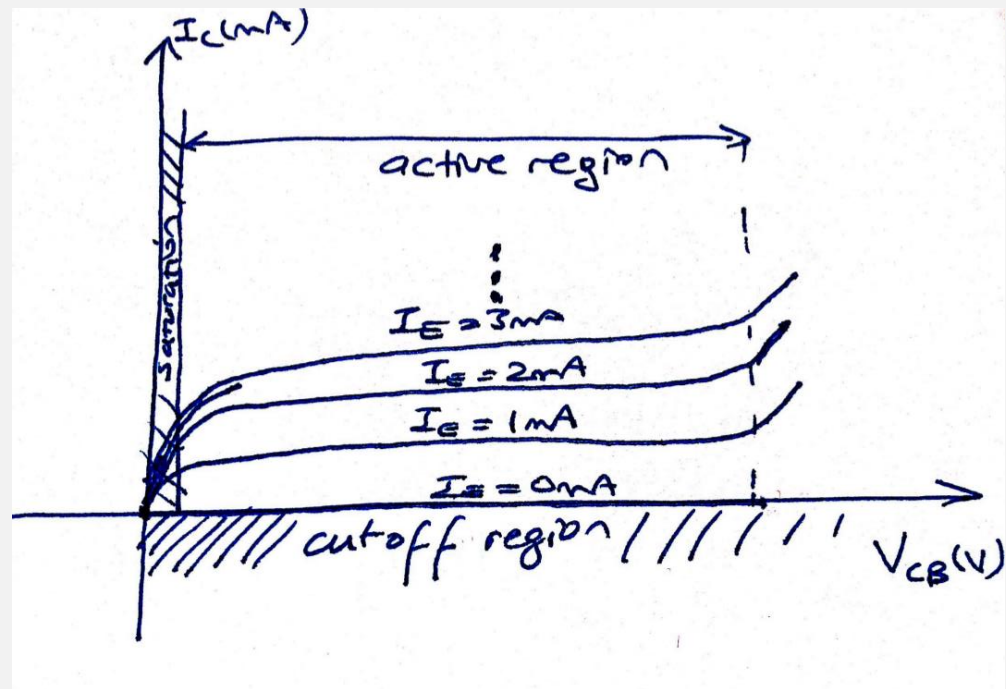 I_C(mA)
active region
saturation
I_E = 3mA
I_E = 2mA
I_E = 1mA
I_E = 0mA
cutoff region
V_CB(V)